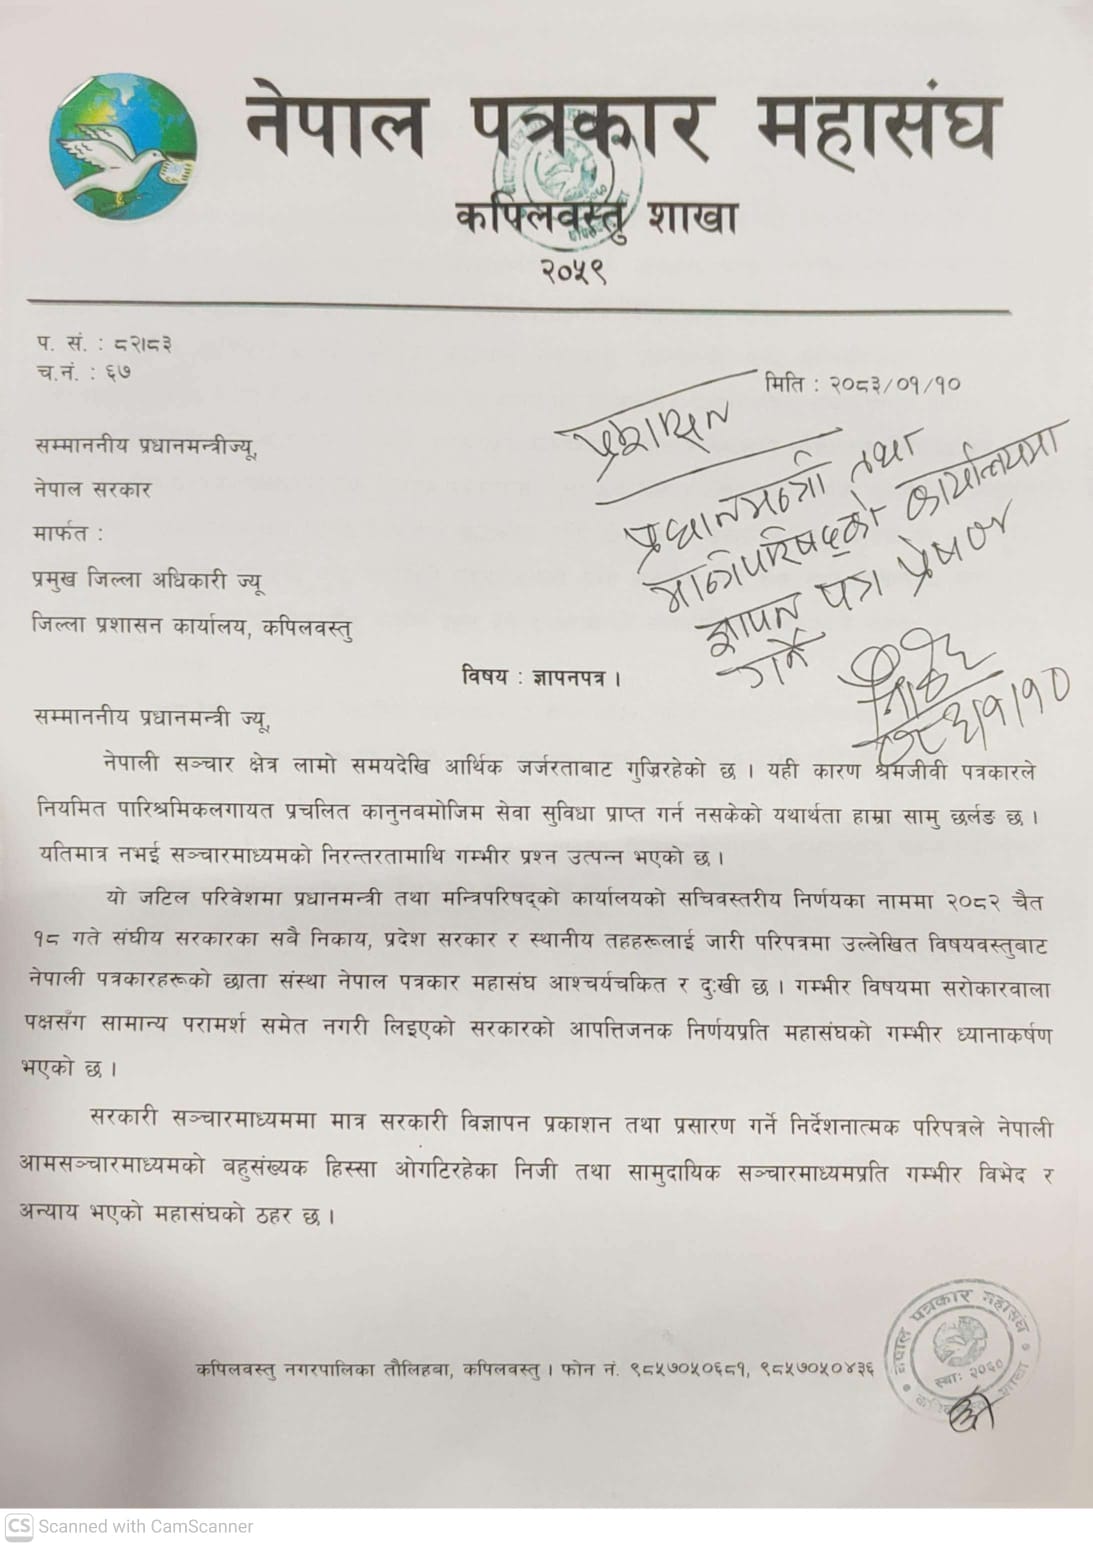 नेपाल पत्रकार महासंघ
कपिलवस्तु शाखा
२०५९
प. सं. : ८२।८३
च.नं. : ६७
मिति : २०८३/०१/१०
प्रशासन
प्रधानमन्त्री तथा
मन्त्रिपरिषद्को कार्यालयमा
ज्ञापन पत्र प्रेषण
गर्ने
सम्माननीय प्रधानमन्त्रीज्यू,
नेपाल सरकार
मार्फत :
प्रमुख जिल्ला अधिकारी ज्यू
जिल्ला प्रशासन कार्यालय, कपिलवस्तु
विषय : ज्ञापनपत्र ।
सम्माननीय प्रधानमन्त्री ज्यू,
नेपाली सञ्चार क्षेत्र लामो समयदेखि आर्थिक जर्जरताबाट गुज्रिरहेको छ । यही कारण श्रमजीवी पत्रकारले
नियमित पारिश्रमिकलगायत प्रचलित कानुनबमोजिम सेवा सुविधा प्राप्त गर्न नसकेको यथार्थता हाम्रा सामु छर्लङ छ ।
यतिमात्र नभई सञ्चारमाध्यमको निरन्तरतामाथि गम्भीर प्रश्न उत्पन्न भएको छ ।
यो जटिल परिवेशमा प्रधानमन्त्री तथा मन्त्रिपरिषद्को कार्यालयको सचिवस्तरीय निर्णयका नाममा २०८२ चैत
१८ गते संघीय सरकारका सबै निकाय, प्रदेश सरकार र स्थानीय तहहरूलाई जारी परिपत्रमा उल्लेखित विषयवस्तुबाट
नेपाली पत्रकारहरूको छाता संस्था नेपाल पत्रकार महासंघ आश्चर्यचकित र दुःखी छ । गम्भीर विषयमा सरोकारवाला
पक्षसँग सामान्य परामर्श समेत नगरी लिइएको सरकारको आपत्तिजनक निर्णयप्रति महासंघको गम्भीर ध्यानाकर्षण
भएको छ ।
सरकारी सञ्चारमाध्यममा मात्र सरकारी विज्ञापन प्रकाशन तथा प्रसारण गर्ने निर्देशनात्मक परिपत्रले नेपाली
आमसञ्चारमाध्यमको बहुसंख्यक हिस्सा ओगटिरहेका निजी तथा सामुदायिक सञ्चारमाध्यमप्रति गम्भीर विभेद र
अन्याय भएको महासंघको ठहर छ ।
नेपाल पत्रकार महासंघ
स्थाः २०६०
शाखा
कपिलवस्तु नगरपालिका तौलिहबा, कपिलवस्तु । फोन नं. ९८५७०५०६८१, ९८५७०५०४३६
CS Scanned with CamScanner